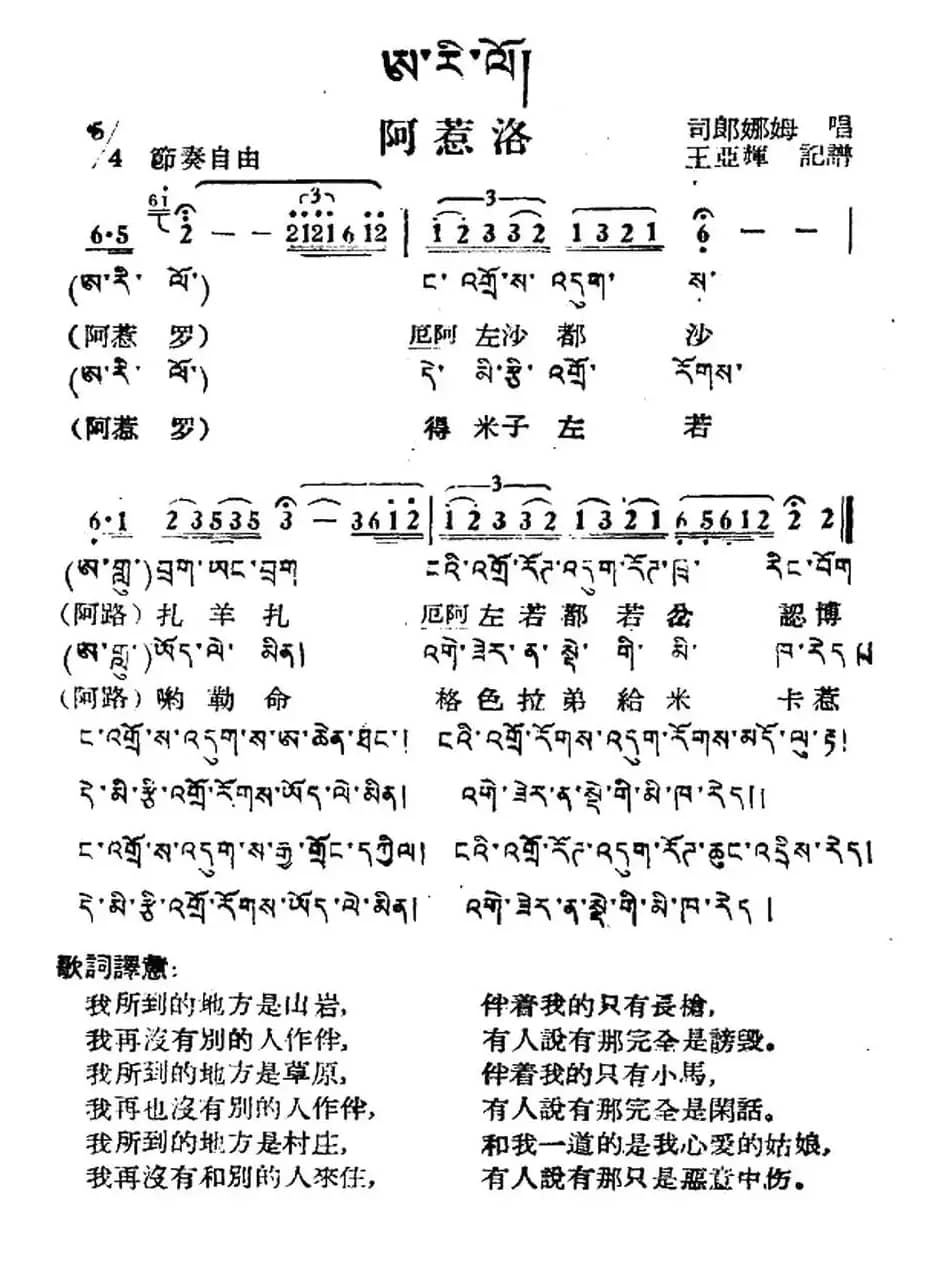 ཨ་རི་ལོ།
阿惹洛
5/4 節奏自由
司郎娜姆 唱
王亞輝 記譜
6·5 6i 2 — — 2121 6 12 | 1 2 3 3 2 1 3 2 1 6 — — |
(ཨ་རི་ ལོ་) ང་ འགྲོ་ས་ འདུག་ ས་
(阿惹 罗) 厄阿 左沙 都 沙
(ཨ་རི་ ལོ་) དེ་ མི་རྩི་ འགྲོ་ རོགས་
(阿惹 罗) 得 米子左 若
6·1 2 3 5 3 5 3 — 3 6 1 2 | 1 2 3 3 2 1 3 2 1 6 5 6 1 2 2 2 ‖
(ཨ་གླུ་) བྲག་ཨང་བྲག ངའི་འགྲོ་རོཊ་འདུག་རོཊ་ཁྲ་ རིང་པོག
(阿路) 扎 羊 扎 厄阿 左 若 都 若 岔 認博
(ཨ་གླུ་) ཡོད་ལེ་ མིན། འགེ་ཟེར་ན་སྡེ་ གི་ མི་ ཁ་རེད།
(阿路) 喲 勒 命 格 色 拉 弟 給 米 卡 惹
ང་འགྲོ་ས་འདུག་ས་ཨ་ཆེན་ཐང་། ངའི་འགྲོ་རོགས་འདུག་རོགས་མདོ་ལུ་རྟ།
དེ་མི་རྩི་འགྲོ་རོགས་ཡོད་ལེ་མིན། འགེ་ཟེར་ན་སྡེ་གི་མི་ཁ་རེད།།
ང་འགྲོ་ས་འདུག་ས་རྒྱ་གྲོང་དཀྱིལ། ངའི་འགྲོ་རོཊ་འདུག་རོཊ་ཆུང་འདྲིས་རེད།
དེ་མི་རྩི་འགྲོ་རོགས་ཡོད་ལེ་མིན། འགེ་ཟེར་ན་སྡེ་གི་མི་ཁ་རེད །
歌詞譯意:
我所到的地方是山岩, 伴着我的只有長槍,
我再沒有別的人作伴, 有人說有那完全是謗毀。
我所到的地方是草原, 伴着我的只有小馬,
我再也沒有別的人作伴, 有人說有那完全是閑話。
我所到的地方是村庄, 和我一道的是我心愛的姑娘,
我再沒有和別的人來往, 有人說有那只是惡意中伤。